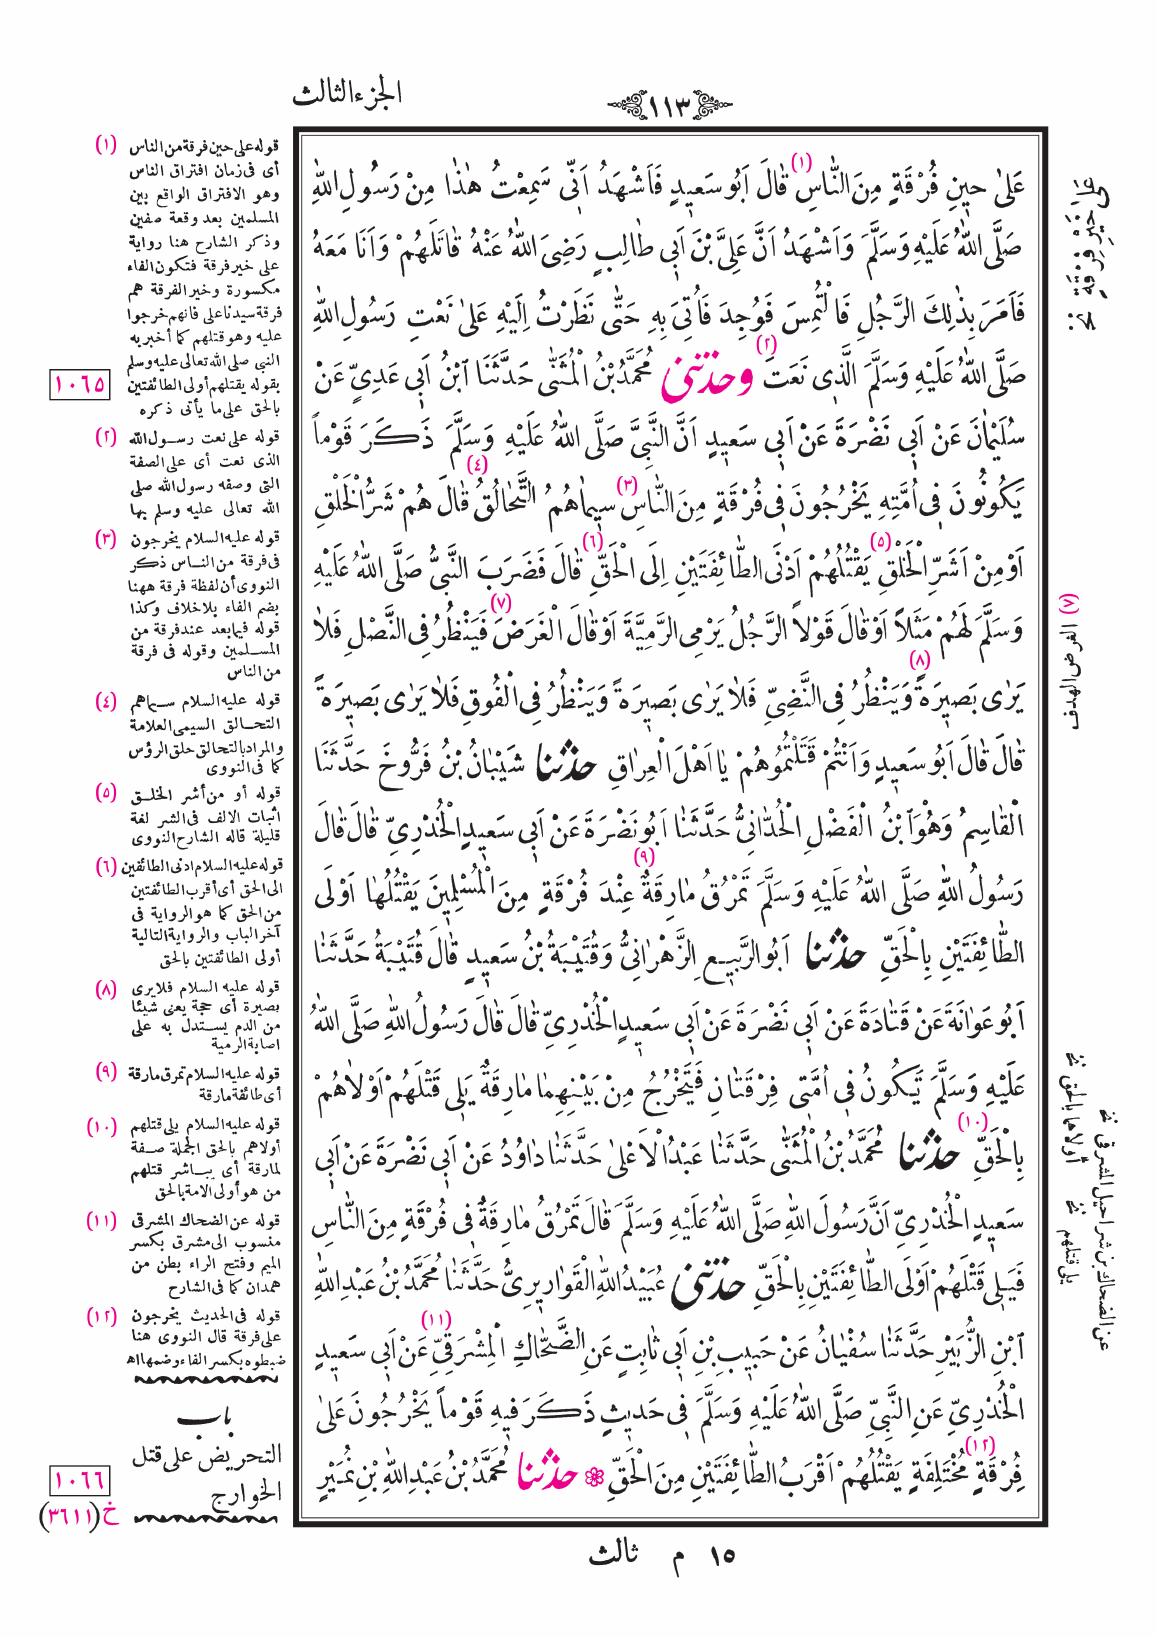 الجزء الثالث
١١٣
عَلٰى حِينِ فُرْقَةٍ مِنَ النَّاسِ (١) قَالَ اَبُو سَعِيدٍ فَاَشْهَدُ اَنِّى سَمِعْتُ هٰذَا مِنْ رَسُولِ اللّٰهِ
صَلَّى اللّٰهُ عَلَيْهِ وَسَلَّمَ وَاَشْهَدُ اَنَّ عَلِىَّ بْنَ اَبِى طَالِبٍ رَضِىَ اللّٰهُ عَنْهُ قَاتَلَهُمْ وَاَنَا مَعَهُ
فَاَمَرَ بِذٰلِكَ الرَّجُلِ فَالْتُمِسَ فَوُجِدَ فَاُتِىَ بِهِ حَتّٰى نَظَرْتُ اِلَيْهِ عَلٰى نَعْتِ رَسُولِ اللّٰهِ
صَلَّى اللّٰهُ عَلَيْهِ وَسَلَّمَ الَّذِى نَعَتَ (٢) وحدثنى مُحَمَّدُ بْنُ الْمُثَنّٰى حَدَّثَنَا ابْنُ اَبِى عَدِىٍّ عَنْ
سُلَيْمٰانَ عَنْ اَبِى نَضْرَةَ عَنْ اَبِى سَعِيدٍ اَنَّ النَّبِىَّ صَلَّى اللّٰهُ عَلَيْهِ وَسَلَّمَ ذَكَرَ قَوْماً
يَكُونُونَ فِى اُمَّتِهِ يَخْرُجُونَ فِى فُرْقَةٍ مِنَ النَّاسِ (٣) سِيمَاهُمُ التَّحَالُقُ (٤) قَالَ هُمْ شَرُّ الْخَلْقِ
اَوْ مِنْ اَشَرِّ الْخَلْقِ (٥) يَقْتُلُهُمْ اَدْنَى الطَّائِفَتَيْنِ اِلَى الْحَقِّ (٦) قَالَ فَضَرَبَ النَّبِىُّ صَلَّى اللّٰهُ عَلَيْهِ
وَسَلَّمَ لَهُمْ مَثَلاً اَوْ قَالَ قَوْلاً الرَّجُلُ يَرْمِى الرَّمِيَّةَ اَوْ قَالَ الْغَرَضَ (٧) فَيَنْظُرُ فِى النَّصْلِ فَلاَ
يَرٰى بَصِيرَةً (٨) وَيَنْظُرُ فِى النَّضِىِّ فَلاَ يَرٰى بَصِيرَةً وَيَنْظُرُ فِى الْفُوقِ فَلاَ يَرٰى بَصِيرَةً
قَالَ قَالَ اَبُو سَعِيدٍ وَاَنْتُمْ قَتَلْتُمُوهُمْ يَا اَهْلَ الْعِرَاقِ حدثنا شَيْبَانُ بْنُ فَرُّوخَ حَدَّثَنَا
الْقَاسِمُ وَهُوَ ابْنُ الْفَضْلِ الْحُدَّانِىُّ حَدَّثَنَا اَبُو نَضْرَةَ عَنْ اَبِى سَعِيدٍ الْخُدْرِىِّ قَالَ قَالَ
رَسُولُ اللّٰهِ صَلَّى اللّٰهُ عَلَيْهِ وَسَلَّمَ تَمْرُقُ مَارِقَةٌ (٩) عِنْدَ فُرْقَةٍ مِنَ الْمُسْلِمِينَ يَقْتُلُهَا اَوْلَى
الطَّائِفَتَيْنِ بِالْحَقِّ حدثنا اَبُو الرَّبِيعِ الزَّهْرَانِىُّ وَقُتَيْبَةُ بْنُ سَعِيدٍ قَالَ قُتَيْبَةُ حَدَّثَنَا
اَبُو عَوَانَةَ عَنْ قَتَادَةَ عَنْ اَبِى نَضْرَةَ عَنْ اَبِى سَعِيدٍ الْخُدْرِىِّ قَالَ قَالَ رَسُولُ اللّٰهِ صَلَّى اللّٰهُ
عَلَيْهِ وَسَلَّمَ تَكُونُ فِى اُمَّتِى فِرْقَتَانِ فَتَخْرُجُ مِنْ بَيْنِهِمَا مَارِقَةٌ يَلِى قَتْلَهُمْ اَوْلاَهُمْ
بِالْحَقِّ (١٠) حدثنا مُحَمَّدُ بْنُ الْمُثَنّٰى حَدَّثَنَا عَبْدُ الْاَعْلٰى حَدَّثَنَا دَاوُدُ عَنْ اَبِى نَضْرَةَ عَنْ اَبِى
سَعِيدٍ الْخُدْرِىِّ اَنَّ رَسُولَ اللّٰهِ صَلَّى اللّٰهُ عَلَيْهِ وَسَلَّمَ قَالَ تَمْرُقُ مَارِقَةٌ فِى فُرْقَةٍ مِنَ النَّاسِ
فَيَلِى قَتْلَهُمْ اَوْلَى الطَّائِفَتَيْنِ بِالْحَقِّ حدثنى عُبَيْدُ اللّٰهِ الْقَوَارِيرِىُّ حَدَّثَنَا مُحَمَّدُ بْنُ عَبْدِ اللّٰهِ
ابْنِ الزُّبَيْرِ حَدَّثَنَا سُفْيَانُ عَنْ حَبِيبِ بْنِ اَبِى ثَابِتٍ عَنِ الضَّحَّاكِ الْمِشْرَقِىِّ (١١) عَنْ اَبِى سَعِيدٍ
الْخُدْرِىِّ عَنِ النَّبِىِّ صَلَّى اللّٰهُ عَلَيْهِ وَسَلَّمَ فِى حَدِيثٍ ذَكَرَ فِيهِ قَوْماً يَخْرُجُونَ عَلٰى
فُرْقَةٍ (١٢) مُخْتَلِفَةٍ يَقْتُلُهُمْ اَقْرَبُ الطَّائِفَتَيْنِ مِنَ الْحَقِّ حدثنا مُحَمَّدُ بْنُ عَبْدِ اللّٰهِ بْنِ نُمَيْرٍ
١٥ م ثالث
على خير فرقة نخ
(٧) الغرض الهدف
أولاها بالحق نخ
يلى قتلهم نخ
عن الضحاك بن شراحيل المشرقى نخ
(١) قوله على حين فرقة من الناس
أى فى زمان افتراق الناس
وهو الافتراق الواقع بين
المسلمين بعد وقعة صفين
وذكر الشارح هنا رواية
على خير فرقة فتكون الفاء
مكسورة وخير الفرقة هم
فرقة سيدنا على فانهم خرجوا
عليه وهو قتلهم كما أخبر به
النبى صلى الله تعالى عليه وسلم
بقوله يقتلهم أولى الطائفتين
بالحق على ما يأتى ذكره
١٠٦٥
(٢) قوله على نعت رسول الله
الذى نعت أى على الصفة
التى وصفه رسول الله صلى
الله تعالى عليه وسلم بها
(٣) قوله عليه السلام يخرجون
فى فرقة من الناس ذكر
النووى أن لفظة فرقة ههنا
بضم الفاء بلا خلاف وكذا
قوله فيما بعد عند فرقة من
المسلمين وقوله فى فرقة
من الناس
(٤) قوله عليه السلام سيماهم
التحالق السيمى العلامة
والمراد بالتحالق حلق الرؤس
كما فى النووى
(٥) قوله أو من أشر الخلق
اثبات الالف فى الشر لغة
قليلة قاله الشارح النووى
(٦) قوله عليه السلام ادنى الطائفتين
الى الحق أى أقرب الطائفتين
من الحق كما هو الرواية فى
آخر الباب والرواية التالية
أولى الطائفتين بالحق
(٨) قوله عليه السلام فلا يرى
بصيرة أى حجة يعنى شيئا
من الدم يستدل به على
اصابة الرمية
(٩) قوله عليه السلام تمرق مارقة
أى طائفة مارقة
(١٠) قوله عليه السلام يلى قتلهم
أولاهم بالحق الجملة صفة
لمارقة أى يباشر قتلهم
من هو أولى الامة بالحق
(١١) قوله عن الضحاك المشرقى
منسوب الى مشرق بكسر
الميم وفتح الراء بطن من
همدان كما فى الشارح
(١٢) قوله فى الحديث يخرجون
على فرقة قال النووى هنا
ضبطوه بكسر الفاء وضمها اه
باب
التحريض على قتل
الخوارج
١٠٦٦
خ (٣٦١١)